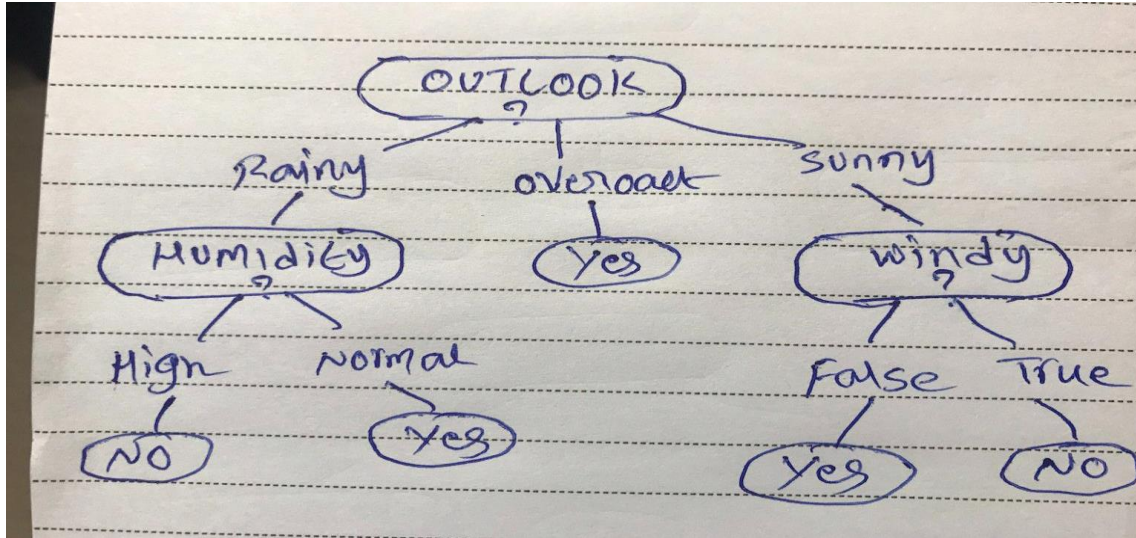 OUTLOOK
?
Rainy overcast sunny
Humidity Yes windy
? ?
High Normal False True
NO Yes Yes NO